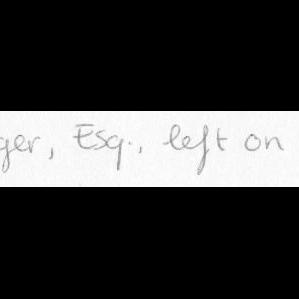 ger, Esq., left on